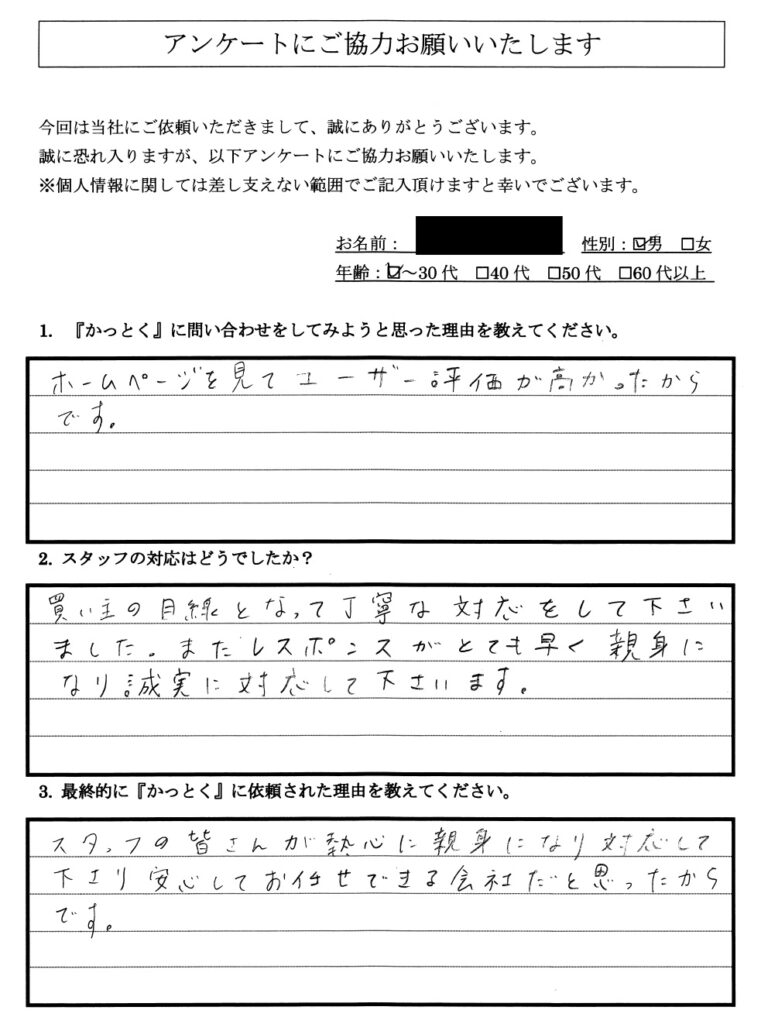 アンケートにご協力お願いいたします
今回は当社にご依頼いただきまして、誠にありがとうございます。
誠に恐れ入りますが、以下アンケートにご協力お願いいたします。
※個人情報に関しては差し支えない範囲でご記入頂けますと幸いでございます。
お名前： 性別：☑男 □女
年齢：☑～30代 □40代 □50代 □60代以上
1. 『かっとく』に問い合わせをしてみようと思った理由を教えてください。
ホームページを見てユーザー評価が高かったから
です。
2. スタッフの対応はどうでしたか？
買い主の目線となって丁寧な対応をして下さい
ました。またレスポンスがとても早く親身に
なり誠実に対応して下さいます。
3. 最終的に『かっとく』に依頼された理由を教えてください。
スタッフの皆さんが熱心に親身になり対応して
下さり安心してお任せできる会社だと思ったから
です。